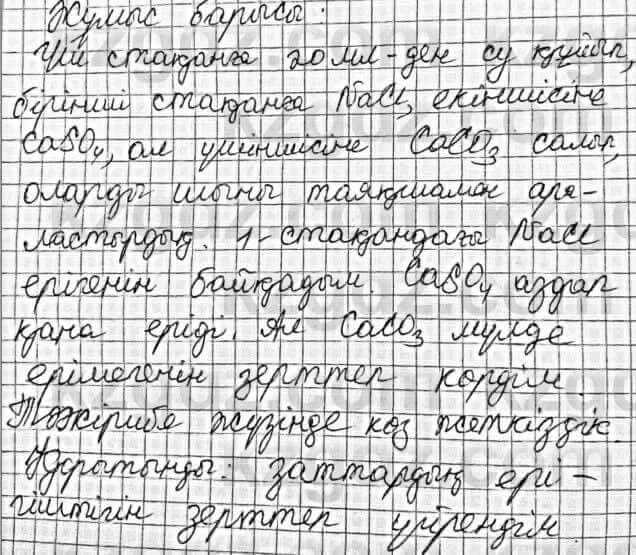 Жұмыс барысы:
Үш стақанға 20 мл-ден су құйып,
бірінші стақанға NaCl, екіншісіне
CaSO₄, ал үшіншісіне CaCO₃ салып,
оларды шыны таяқшамен ара-
ластырдық. 1-стақандағы NaCl
ерігенін байқадым. CaSO₄ аздап
қана еріді. Ал CaCO₃ мүлде
ерімегенін зерттеп көрдім.
Тәжірибе жүзінде көз жеткіздік.
Қорытынды: заттардың ері-
гіштігін зерттеп үйрендім.